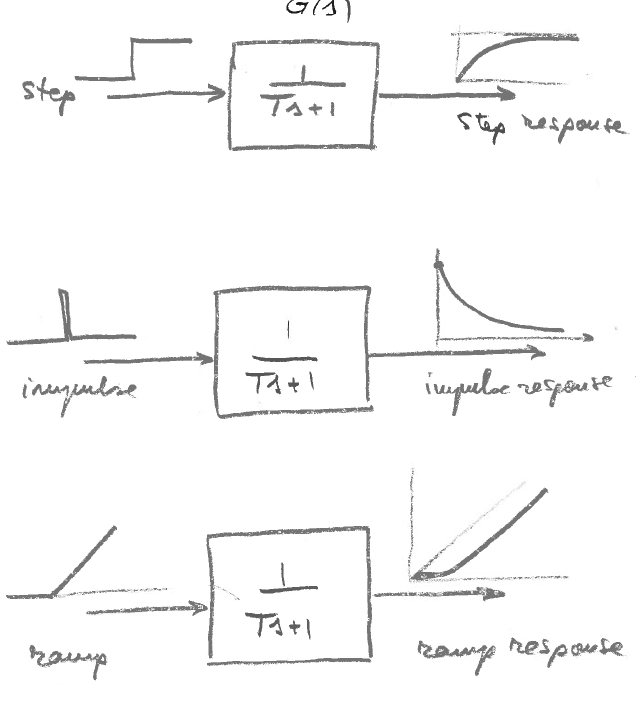 G(s)
step
1
Ts+1
step response
impulse
1
Ts+1
impulse response
ramp
1
Ts+1
ramp response